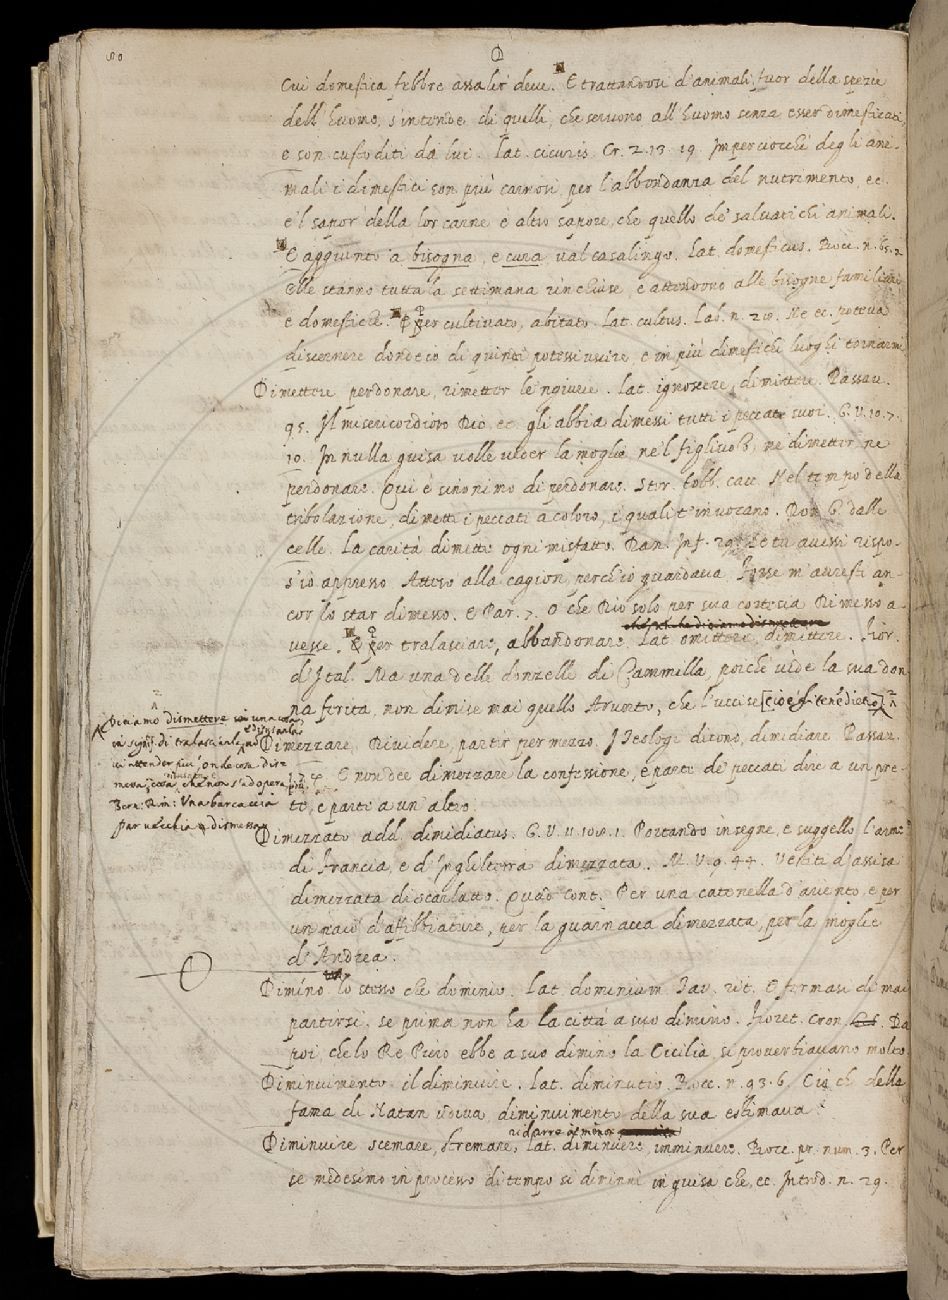 D
Cui domestica febbre assalir deve. E trattandosi d'animali fuor della spezie
dell'huomo, s'intende di quelli, che servono all'huomo senza esser dimesticati,
e son custoditi da lui. Lat. cicuris. Cr. 2. 13. 19. Imperciocchè degli ani-
mali i dimestici son più carnosi, per l'abbondanza del nutrimento, ec.
e'l sapor della lor carne è altro sapore, che quello de' salvatichi animali.
E aggiunto a bisogna, e cura, val casalingo. Lat. domesticus. Bocc. n. 65. 2
Elle stanno tutta la settimana rinchiuse, e attendono alle bisogne familiari
e domestiche. E per cultivato, abitato. Lat. cultus. Lab. n. 20. Ne ec. poteva
discernere donde io di quindi potessi uscire e in più dimestichi luoghi tornarmi
Dimettere perdonare, rimetter le ngiurie. Lat. ignoscere, dimittere. Passav.
95. Il misericordioso Dio, ec. gli abbia dimessi tutti i peccati suoi. G. V. 10. 7.
10. In nulla guisa volle veder la moglie, nè 'l figliuolo, nè dimetter, ne
perdonare. Qui è sinonimo di perdonare. Stor. Tobb. cacc. Nel tempo della
tribolazione, dimetti i peccati a coloro, i quali t'invocano. Don G. dalle
celle. La carità dimette ogni misfatto. Dan. Inf. 29. Se tu avessi rispo-
s'io appresso Atteso alla cagion, perch'io guardava Forse m'avresti an-
cor lo star dimesso. E Par. 7. O che Dio solo per sua cortesia Dimesso a-
vesse. E per tralasciare, abbandonare. Lat. omittere, dimittere. Fior.
d'Ital. Ma una delle donzelle di Cammilla, poichè vide la sua don-
na ferita, non dimise mai quello Arunto, che l'uccise [cioè
Diciamo dismettere
in signif. di tralasciare,
Bern: Rim: Una barcaccia
par vecchia dismessa
Dimezzare, Dividere, partir per mezzo. I Teologi dicono, dimidiare. Passav.
E non dee dimezzare la confessione, e parte de' peccati dire a un pre-
te, e parte a un' altro.
Dimezzato add. dimidiatus. G. V. 11. 108. 1. Portando insegne, e suggello l'arme
di Francia, e d'Inghilterra dimezzata. M. V. 9. 44. Vestiti d'assisa
dimezzata di scarlatto. Quad. Cont. Per una catenella d'ariento, e per
un paio d'affibbiature, per la guarnacca dimezzata, per la moglie
d'Andrea.
Dimíno lo stesso che dominio. Lat. dominium. Tav. rit. E fermasi di mai
partirsi, se prima non ha la città a suo dimino. Fioret. Cron. Da
poi, che lo Re Piero ebbe a suo dimino la Cicilia, si provertiavano molto
Diminuimento il diminuire. Lat. diminutio. Bocc. n. 93. 6. Ciò che della
fama di Natan udiva diminuimento della sua estimava
ridurre a meno
Diminuire scemare, stremare, Lat. diminuere, imminuere. Bocc. pr. num. 3. Per
se medesimo in processo di tempo si diminuì in guisa che, ec. Introd. n. 29.